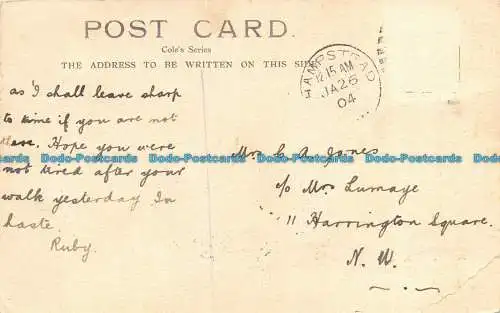 POST CARD.
Cole's Series
THE ADDRESS TO BE WRITTEN ON THIS SIDE
HAMPSTEAD
12.15 AM
JA 26
04
as I shall leave sharp
to time if you are not
there. Hope you were
not tired after your
walk yesterday In
haste.
Ruby.
Mrs G. A. Jones
c/o Mrs Lumaye
11 Harrington Square.
N. W.
Dodo-Postcards Dodo-Postcards Dodo-Postcards Dodo-Postcards Dodo-Postcards